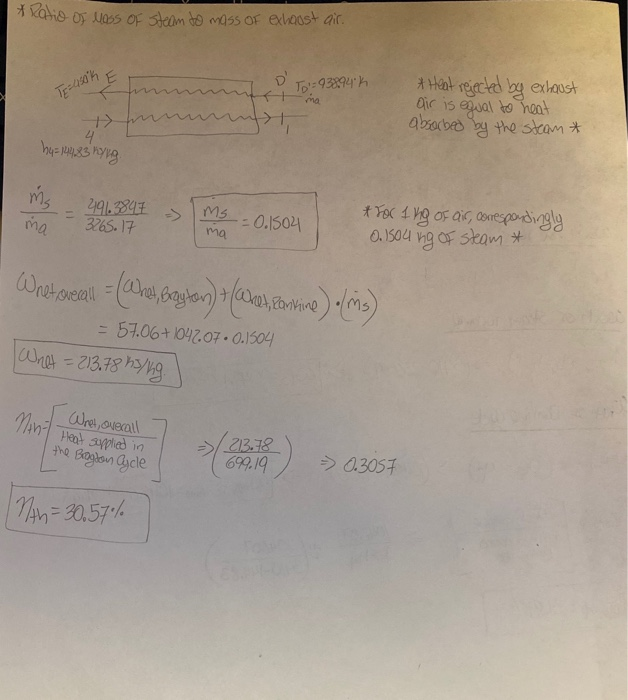 * Ratio of Mass of Steam to mass of exhaust air.
E
D'
TD' = 938.94°K
ṁa
4
1
h4 = 144.83 KJ/kg
* Heat rejected by exhaust
air is equal to heat
absorbed by the steam *
ṁs / ṁa = 491.3847 / 3265.17 => ms / ma = 0.1504
* For 1 kg of air, correspondingly
0.1504 kg of steam *
Wnet,overall = (Wnet,Brayton) + (Wnet,Rankine) · (ṁs)
= 57.06 + 1042.07 · 0.1504
Wnet = 213.78 KJ/kg
ηth = [Wnet,overall / Heat supplied in the Brayton Cycle] => (213.78 / 699.19) => 0.3057
ηth = 30.57%